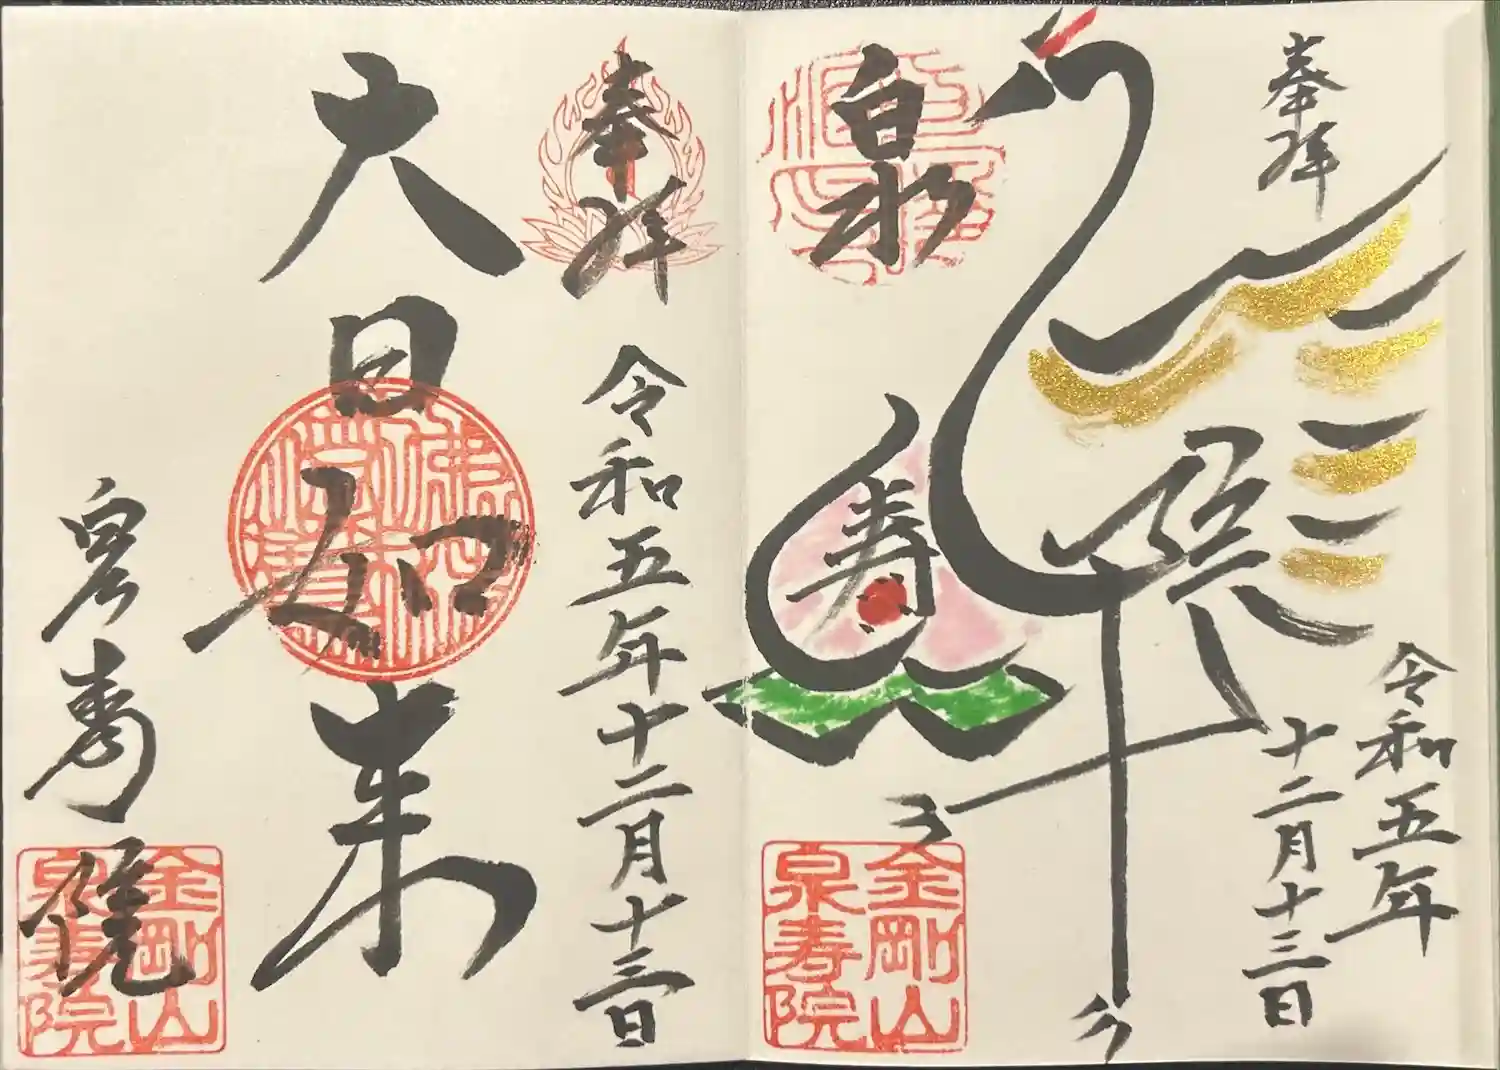 奉拝
令和五年
十二月十三日
泉
寿
金剛山
泉寿院
奉拝
令和五年十二月十三日
大日如来
泉寿院
金剛山
泉寿院